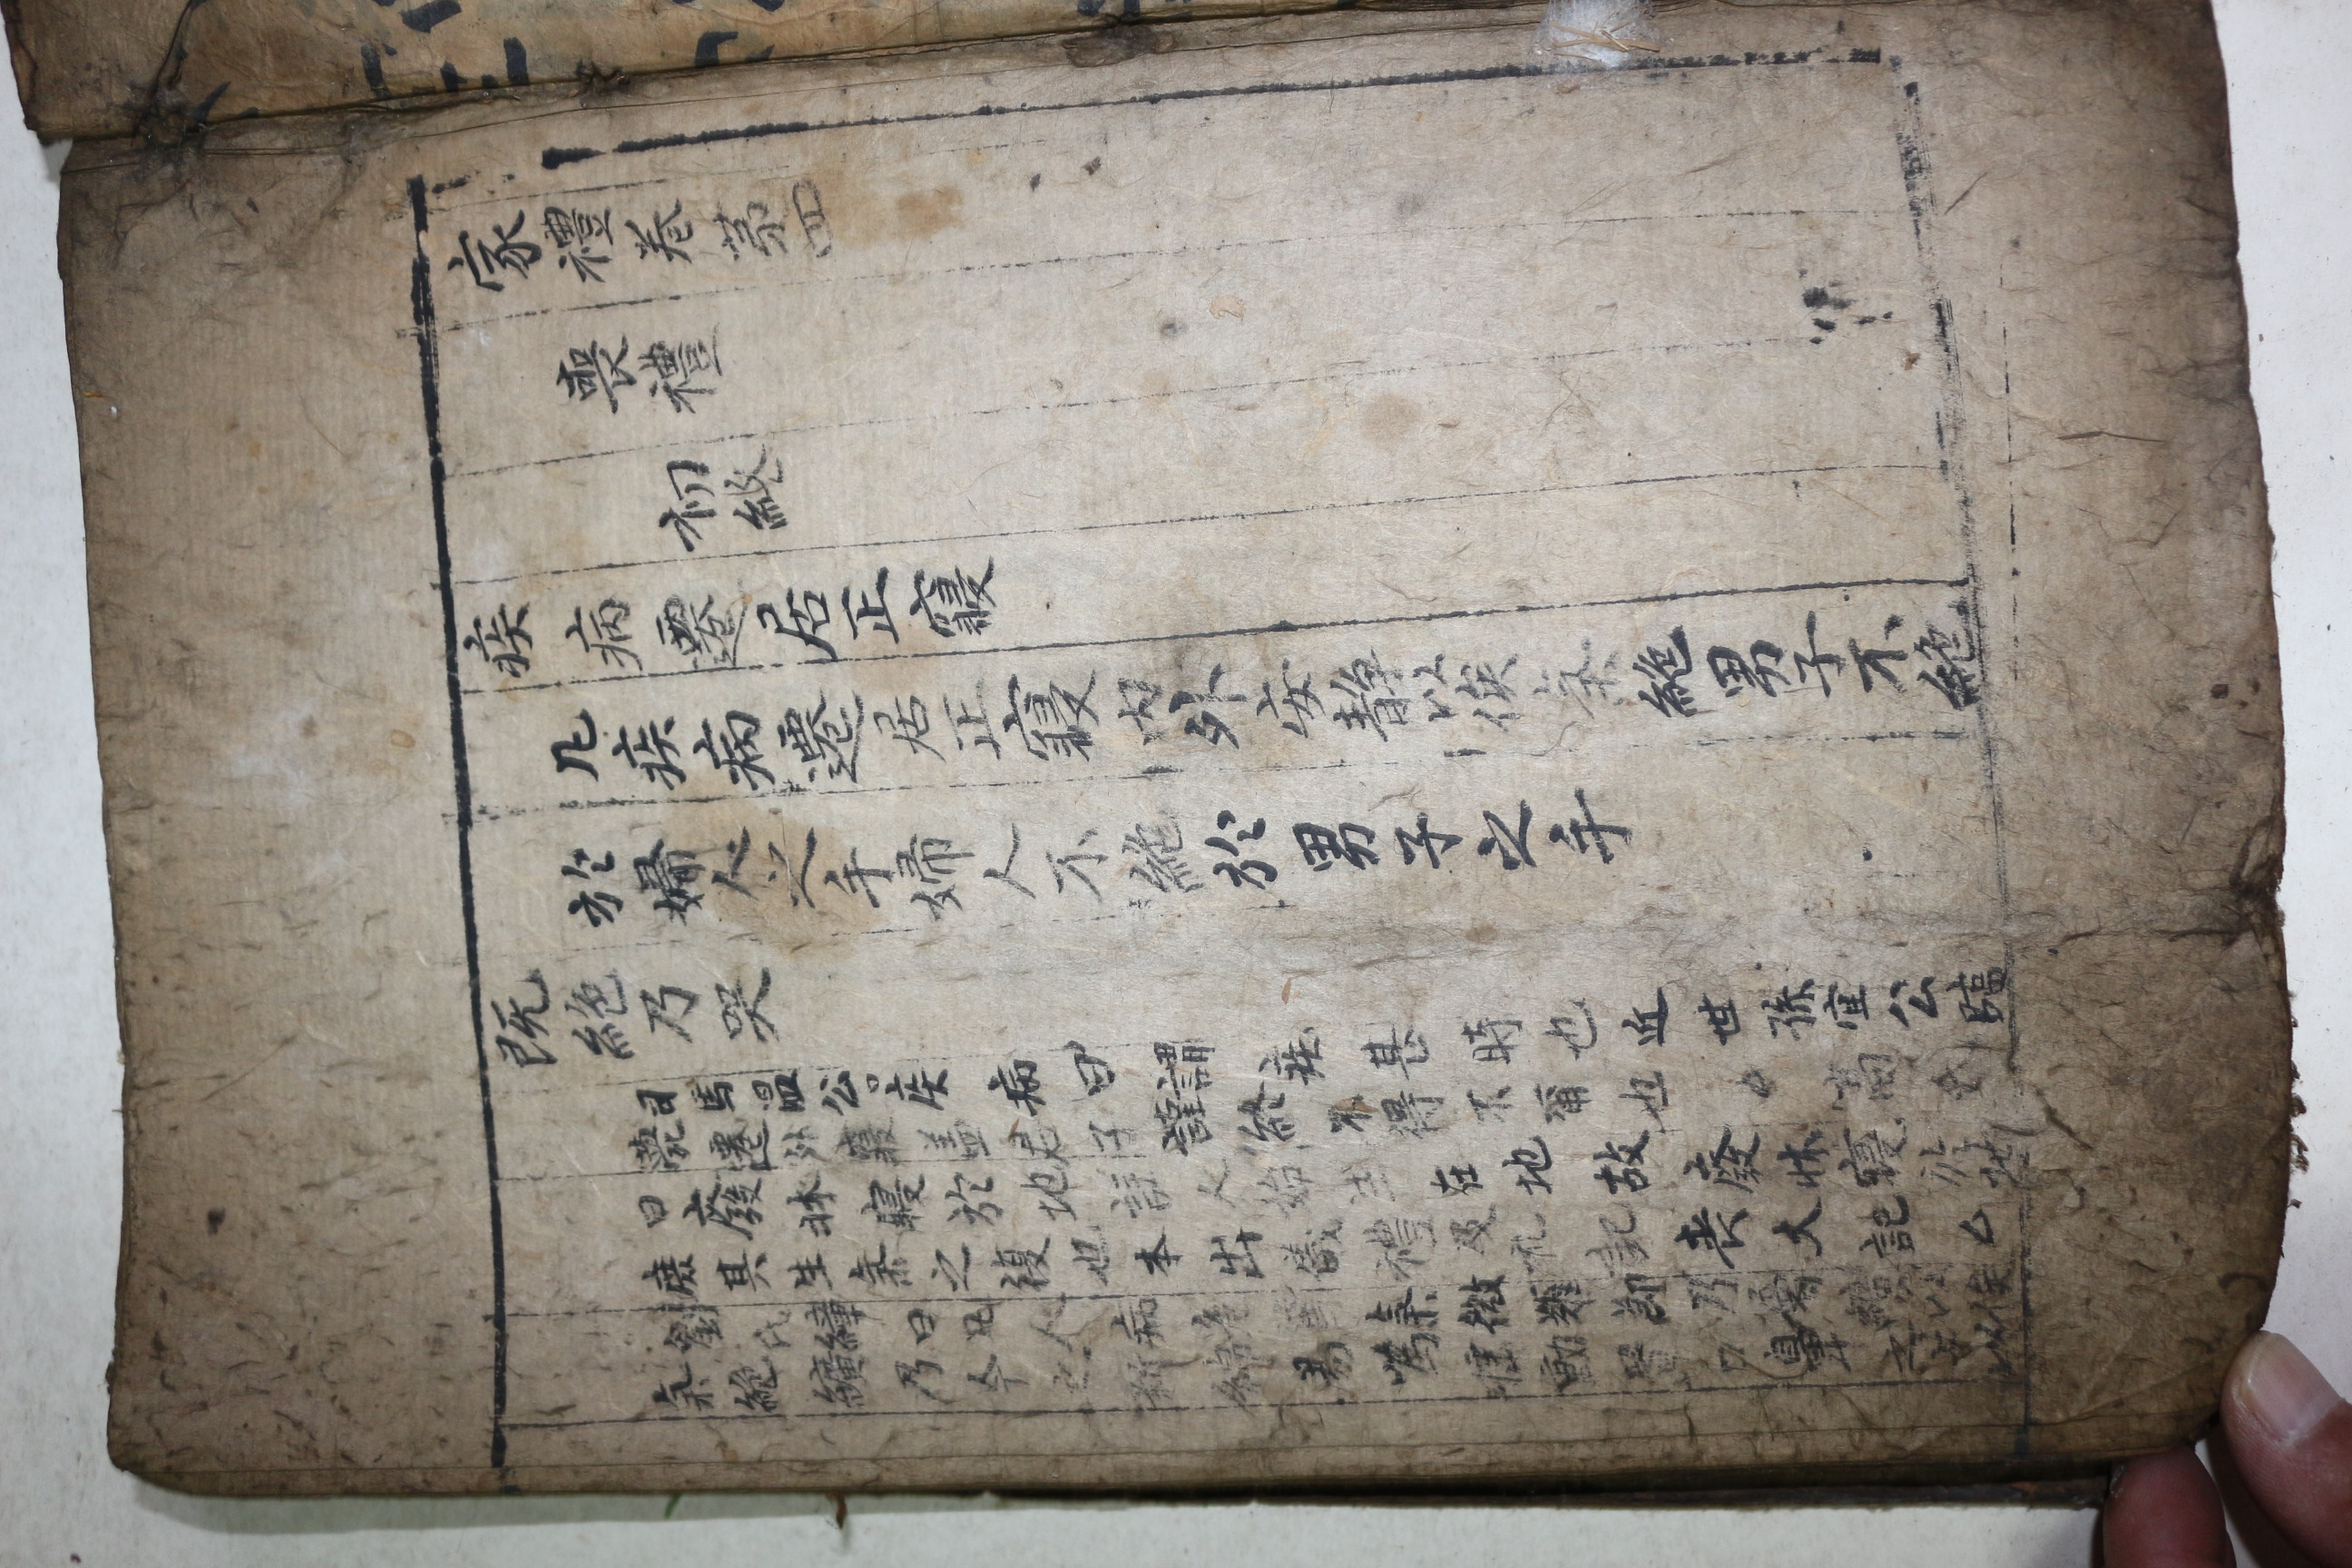 家禮卷苐四
喪禮
初終
疾病遷居正寢
凡疾病遷居正寢內外安静以俟氣絶男子不絶
於婦人之手婦人不絶於男子之手
既絶乃哭
司馬温公曰疾病曰謂疾甚時也近世孫宣公臨
薨遷外寢盖君子謹終不得不爾也 高氏
曰廢牀寢於地註人始生在地故廢牀寢於地
庶其生氣之復也本出儀禮及礼記喪大記
劉氏璋曰凡人病危篤氣微難節乃屬纊以俟
氣絶纊乃今之新綿易爲搖動置口鼻之上以